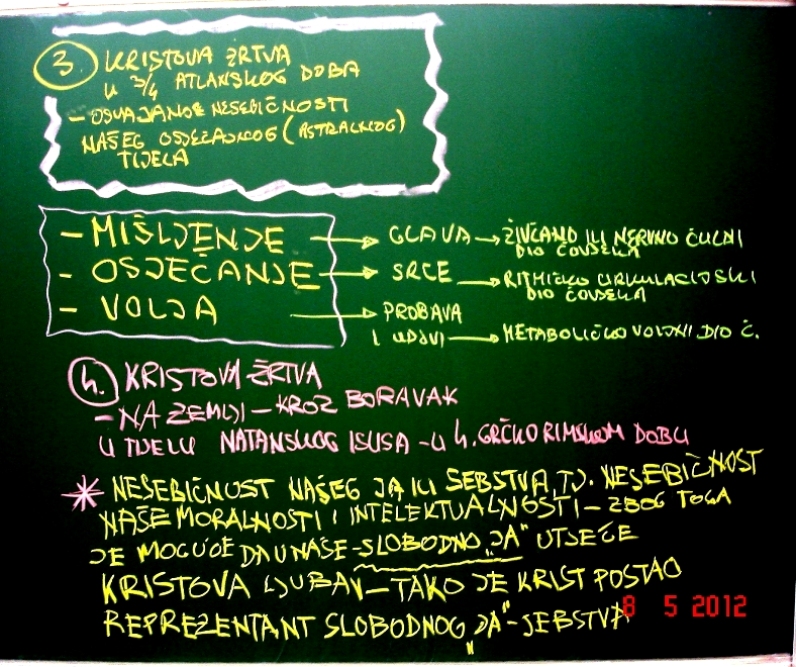 3. KRISTOVA ŽRTVA
U 3/4 ATLANSKOG DOBA
- OSVAJANJE NESEBIČNOSTI
NAŠEG OSJEĆAJNOG (ASTRALNOG)
TIJELA
- MIŠLJENJE → GLAVA → ŽIVČANO ILI NERVNO ČULNI
DIO ČOVJEKA
- OSJEČANJE → SRCE → RITMIČKO CIRKULACIJSKI
DIO ČOVJEKA
- VOLJA → PROBAVA
I UDOVI → METABOLIČKO VOLJNI DIO Č.
4. KRISTOVA ŽRTVA
- NA ZEMLJI - KROZ BORAVAK
U TIJELU NATANSKOG ISUSA - U 4. GRČKO RIMSKOM DOBU
* NESEBIČNOST NAŠEG JA ILI SEBSTVA, TJ. NESEBIČNOST
NAŠE MORALNOSTI I INTELEKTUALNOSTI - ZBOG TOGA
JE MOGUĆE DA U NAŠE - SLOBODNO „JA" UTJEČE
KRISTOVA LJUBAV - TAKO JE KRIST POSTAO
REPREZENTANT SLOBODNOG „JA" - SEBSTVA
8 5 2012